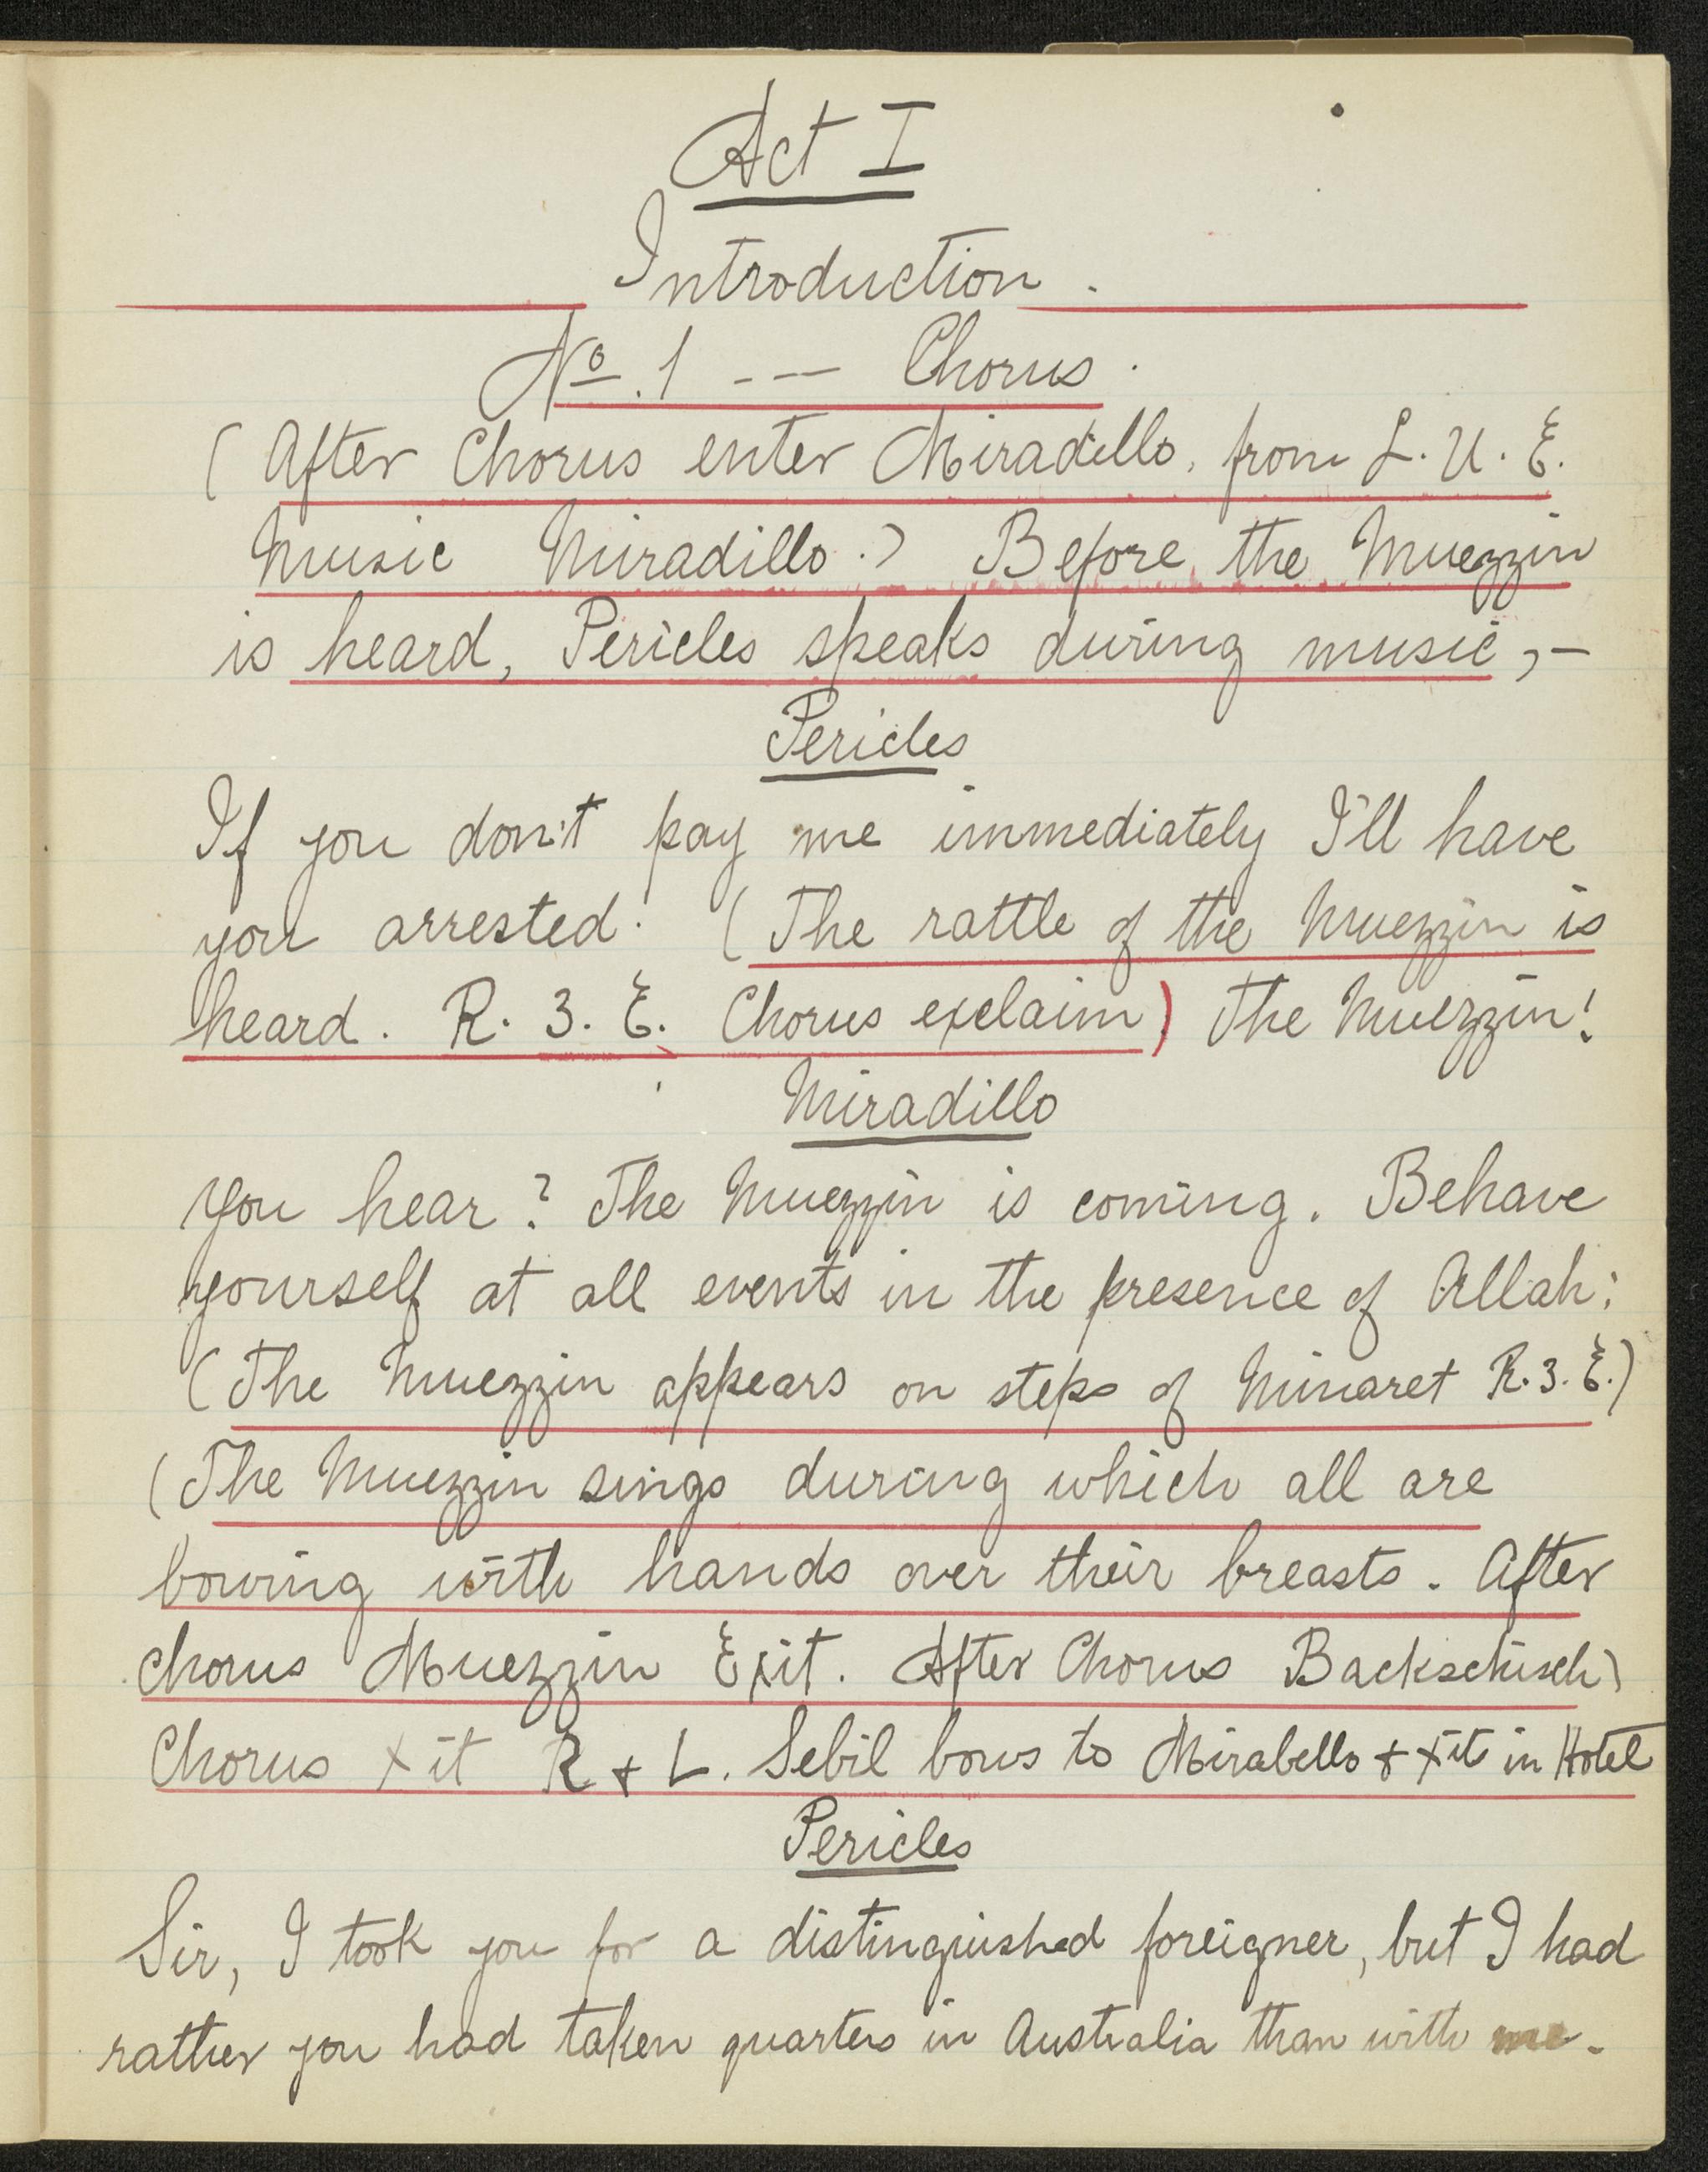 Act I
Introduction.
No. 1 --- Chorus.
(After Chorus enter Miradillo, from L. U. E.
Music Miradillo.) Before the Muezzin
is heard, Pericles speaks during music,—
Pericles
If you don't pay me immediately I'll have
you arrested! (The rattle of the Muezzin is
heard. R. 3. E. Chorus exclaim) The Muezzin!
Miradillo
You hear? The Muezzin is coming. Behave
yourself at all events in the presence of Allah;
(The Muezzin appears on steps of Minaret R. 3. E.)
(The Muezzin sings during which all are
bowing with hands over their breasts. After
chorus Muezzin Exit. After Chorus Backschisch)
Chorus Xit R + L. Sebil bows to Mirabello + Xits in Hotel
Pericles
Sir, I took you for a distinguished foreigner, but I had
rather you had taken quarters in Australia than with me.